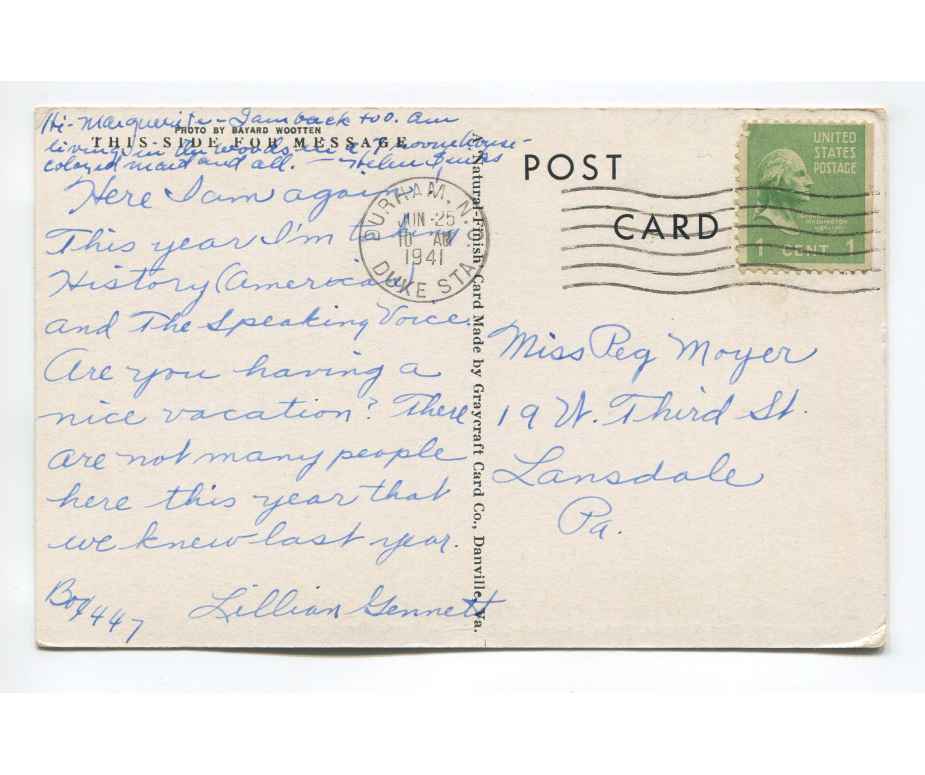 Hi - Marguerite - I am back too. am
PHOTO BY BAYARD WOOTTEN
THIS SIDE FOR MESSAGE
living in the woods in a 7 room house -
colored maid and all. - Helen
Here I am again.
This year I'm taking
History (American)
and The Speaking Voice.
Are you having a
nice vacation? There
are not many people
here this year that
we knew last year.
Box 447
Lillian Gennett
DURHAM, N.C.
JUN 25
10 AM
1941
DUKE STA.
A Natural-Finish Card Made by Graycraft Card Co., Danville, Va.
POST
CARD
UNITED
STATES
POSTAGE
WASHINGTON
1 CENT 1
Miss Peg Moyer
19 W. Third St.
Lansdale
Pa.